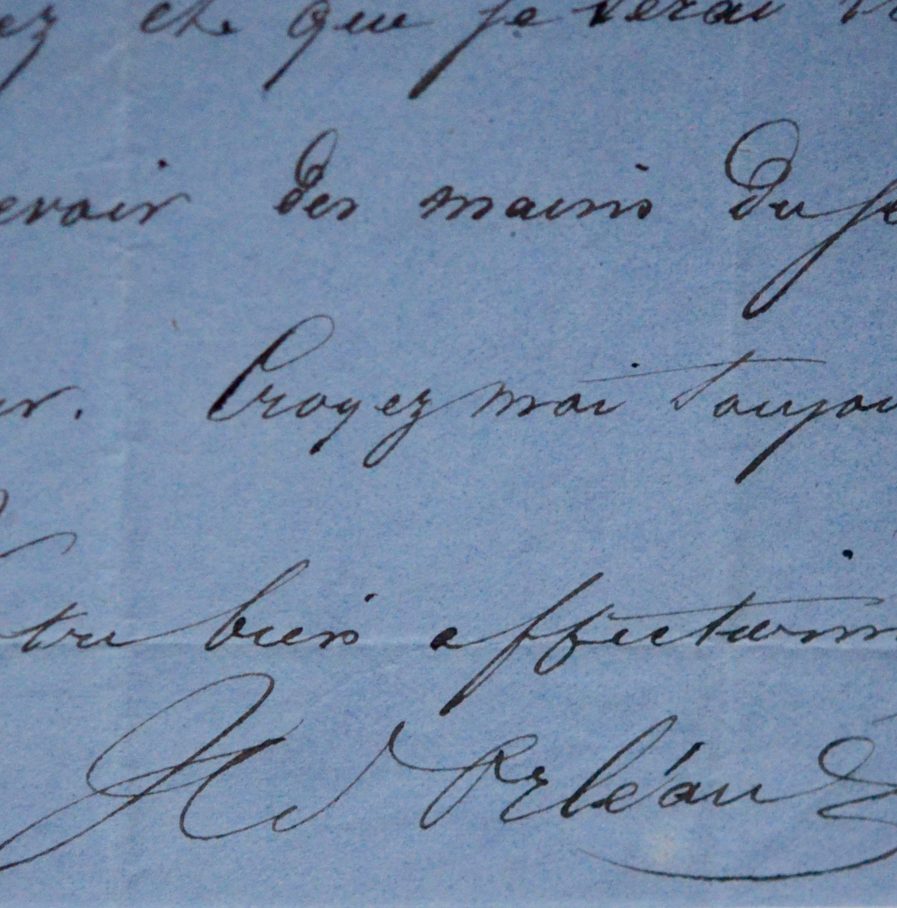 ez que je verai
evoir des mains du
ur. Croyez moi toujou
tre bien affectionn
Orléans